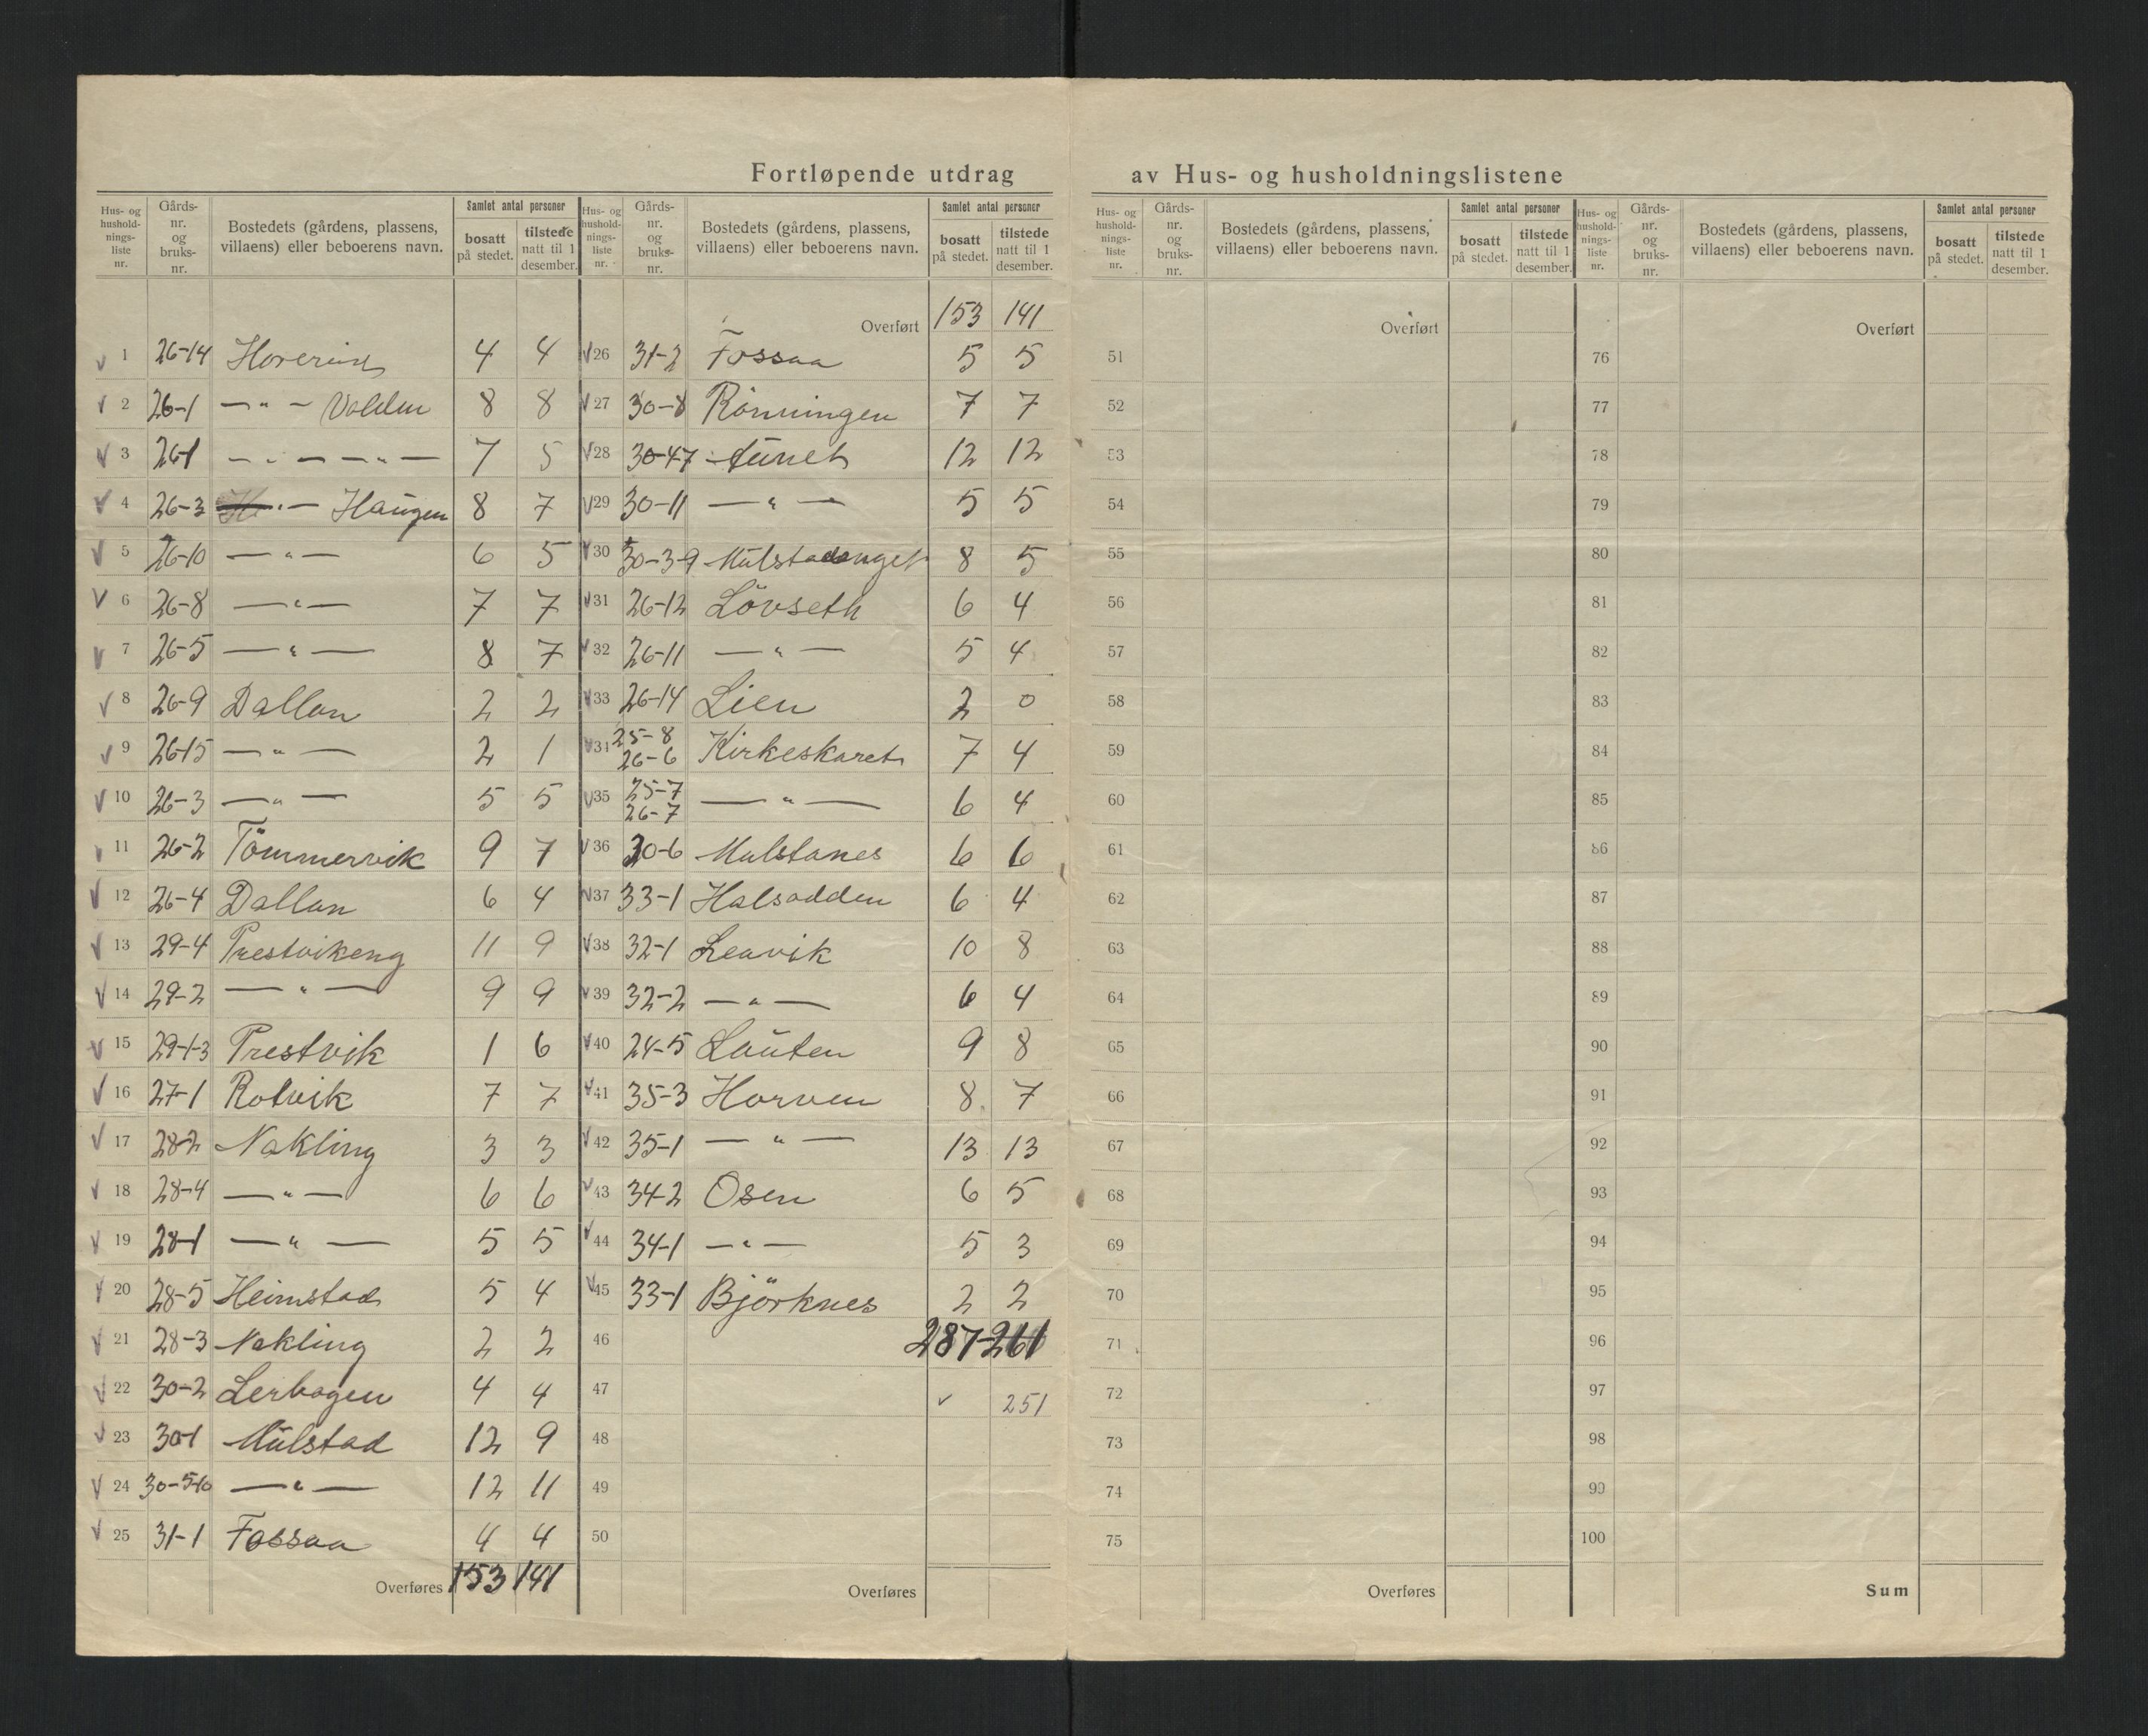 Fortløpende utdrag av Hus- og husholdningslistene
Hus- og hushold-nings-liste nr. Gårds-nr. og bruks-nr. Bostedets (gårdens, plassens, villaens) eller beboerens navn. Samlet antal personer bosatt på stedet. tilstede natt til 1 desember.
1 26-14 4 4
2 26-1 — " — Vollen 8 8
3 26-1 — " — — " — 7 5
4 26-3 " — Haugen 8 7
5 26-10 — " — 6 5
6 26-8 — " — 7 7
7 26-5 — " — 8 7
8 26-9 Dallan 2 2
9 26-15 — " — 2 1
10 26-3 — " — 5 5
11 26-2 Tömmervik 9 7
12 26-4 Dallan 6 4
13 29-4 Prestvikeng 11 9
14 29-2 — " — 9 9
15 29-1-3 Prestvik 1 6
16 27-1 Rotvik 7 7
17 28-2 Nakling 3 3
18 28-4 — " — 6 6
19 28-1 — " — 5 5
20 28-5 Heimstad 5 4
21 28-3 Nakling 2 2
22 30-2 Lerbagen 4 4
23 30-1 Mulstad 12 9
24 30-5-10 — " — 12 11
25 31-1 Fossaa 4 4
Overføres 153 141
Hus- og hushold-nings-liste nr. Gårds-nr. og bruks-nr. Bostedets (gårdens, plassens, villaens) eller beboerens navn. Samlet antal personer bosatt på stedet. tilstede natt til 1 desember.
Overført 153 141
26 31-2 Fossaa 5 5
27 30-8 Rönningen 7 7
28 30-4-7 Tunet 12 12
29 30-11 — " — 5 5
30 30-3-9 8 5
31 26-12 Lövseth 6 4
32 26-11 — " — 5 4
33 26-14 Lien 2 0
34 25-8 26-6 Kirkeskaret 7 4
35 25-7 26-7 — " — 6 4
36 30-6 Mulstanes 6 6
37 33-1 Halsodden 6 4
38 32-1 Leavik 10 8
39 32-2 — " — 6 4
40 24-5 Lauten 9 8
41 35-3 Horven 8 7
42 35-1 — " — 13 13
43 34-2 Osen 6 5
44 34-1 — " — 5 3
45 33-1 Björknes 2 2
46 287-261
47 ✓ 251
48
49
50
Overføres
Hus- og hushold-nings-liste nr. Gårds-nr. og bruks-nr. Bostedets (gårdens, plassens, villaens) eller beboerens navn. Samlet antal personer bosatt på stedet. tilstede natt til 1 desember.
Overført
51
52
53
54
55
56
57
58
59
60
61
62
63
64
65
66
67
68
69
70
71
72
73
74
75
Overføres
Hus- og hushold-nings-liste nr. Gårds-nr. og bruks-nr. Bostedets (gårdens, plassens, villaens) eller beboerens navn. Samlet antal personer bosatt på stedet. tilstede natt til 1 desember.
Overført
76
77
78
79
80
81
82
83
84
85
86
87
88
89
90
91
92
93
94
95
96
97
98
99
100
Sum